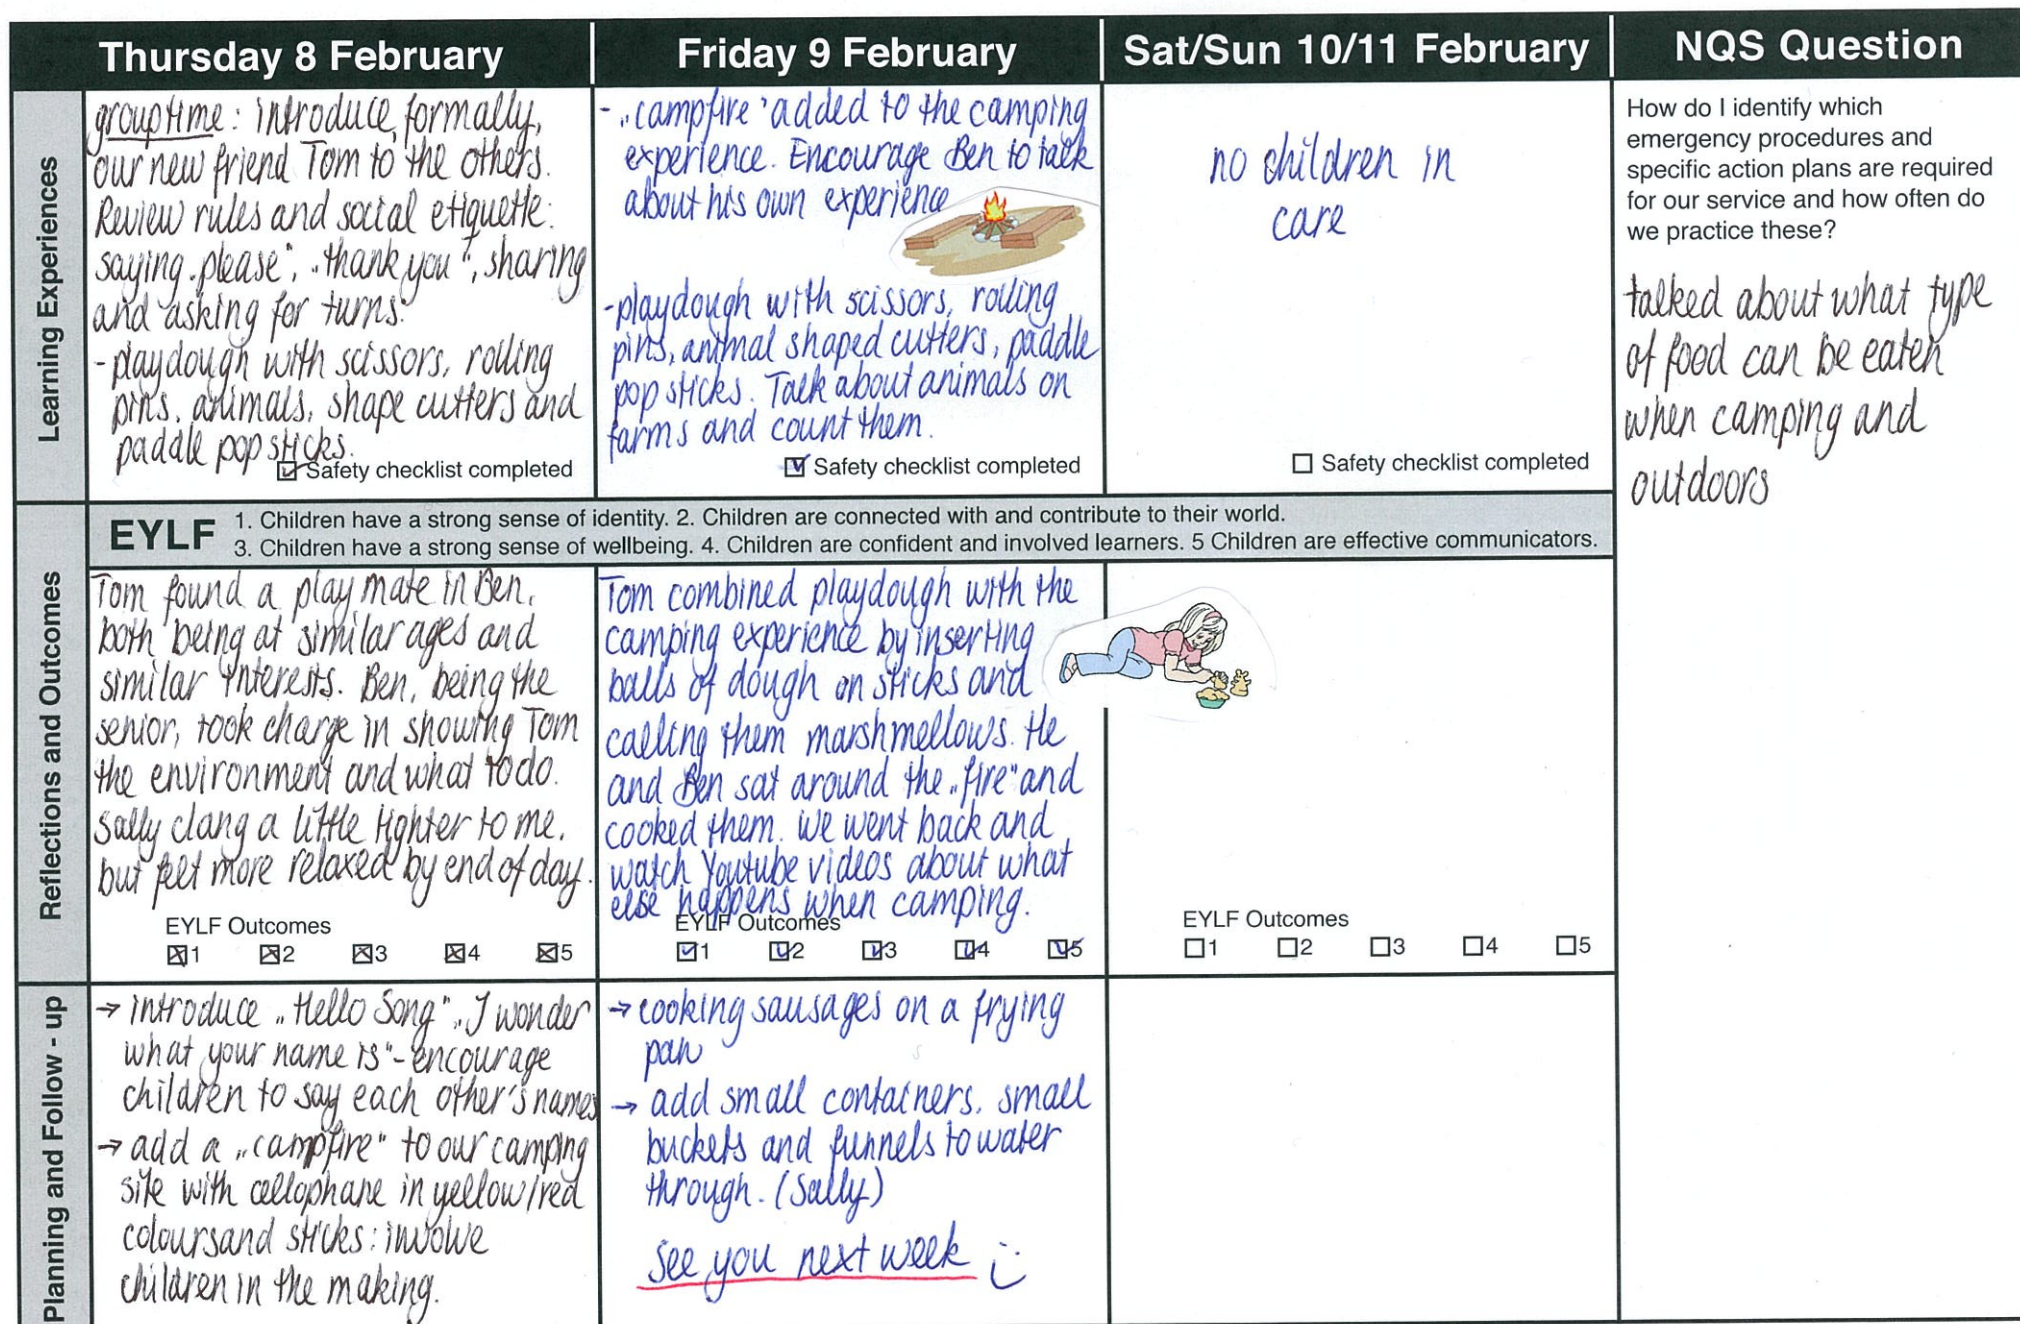 Thursday 8 February
Friday 9 February
Sat/Sun 10/11 February
NQS Question
Learning Experiences
grouptime: introduce, formally,
our new friend Tom to the others.
Review rules and social etiquette:
saying „please", „thank you", sharing
and asking for turns.
- playdough with scissors, rolling
pins, animals, shape cutters and
paddle pop sticks.
Safety checklist completed
- „campfire' added to the camping
experience. Encourage Ben to talk
about his own experience
- playdough with scissors, rolling
pins, animal shaped cutters, paddle
pop sticks. Talk about animals on
farms and count them.
Safety checklist completed
no children in
care
Safety checklist completed
How do I identify which
emergency procedures and
specific action plans are required
for our service and how often do
we practice these?
talked about what type
of food can be eaten
when camping and
outdoors
EYLF
1. Children have a strong sense of identity. 2. Children are connected with and contribute to their world.
3. Children have a strong sense of wellbeing. 4. Children are confident and involved learners. 5 Children are effective communicators.
Reflections and Outcomes
Tom found a play mate in Ben,
both being at similar ages and
similar interests. Ben, being the
senior, took charge in showing Tom
the environment and what to do.
Sally clang a little tighter to me,
but felt more relaxed by end of day.
EYLF Outcomes
1 2 3 4 5
Tom combined playdough with the
camping experience by inserting
balls of dough on sticks and
calling them marshmellows. He
and Ben sat around the „fire" and
cooked them. We went back and
watch Youtube videos about what
else happens when camping.
EYLF Outcomes
1 2 3 4 5
EYLF Outcomes
1 2 3 4 5
Planning and Follow - up
→ introduce „Hello Song" „I wonder
what your name is" - encourage
children to say each other's names
→ add a „campfire" to our camping
site with cellophane in yellow/red
colours and sticks: involve
children in the making.
→ cooking sausages on a frying
pan
→ add small containers, small
buckets and funnels to water
through. (Sally)
See you next week